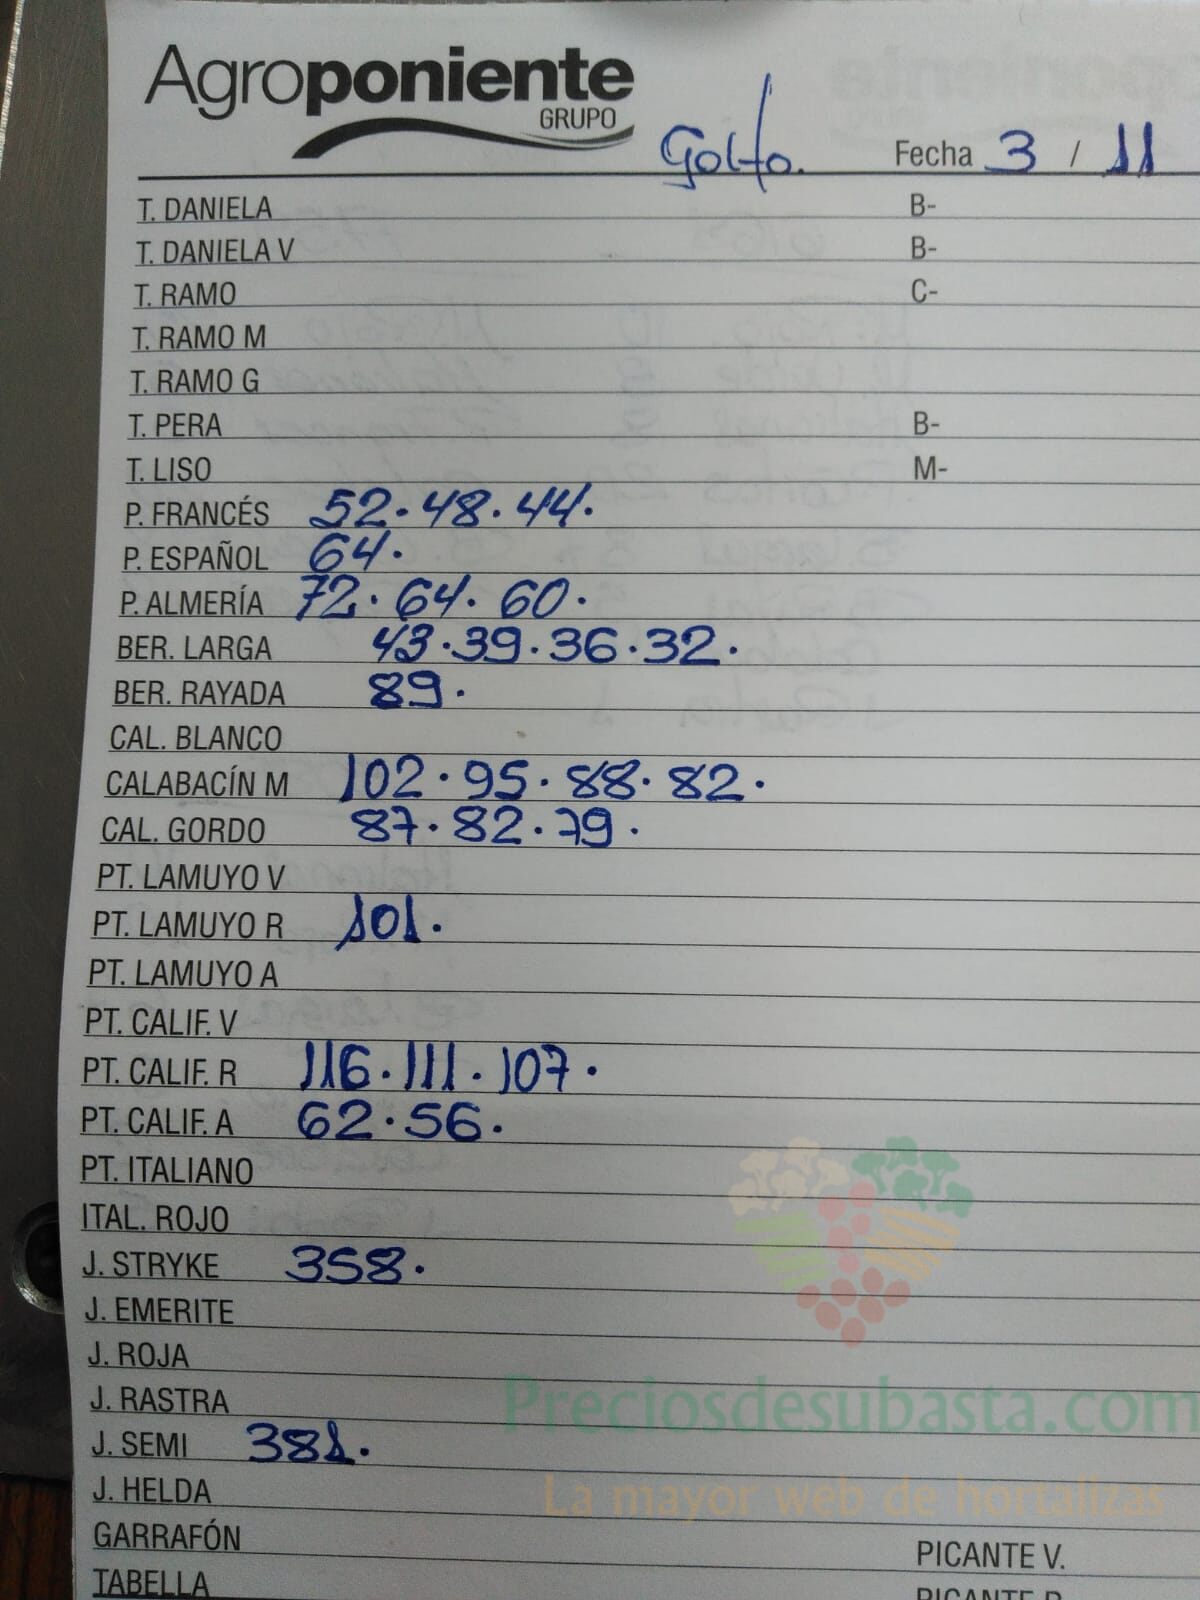 Agroponiente
GRUPO
Golfo. Fecha 3 / 11
T. DANIELA B-
T. DANIELA V B-
T. RAMO C-
T. RAMO M
T. RAMO G
T. PERA B-
T. LISO M-
P. FRANCÉS 52·48·44.
P. ESPAÑOL 64.
P. ALMERÍA 72·64·60.
BER. LARGA 43·39·36·32.
BER. RAYADA 89.
CAL. BLANCO
CALABACÍN M 102·95·88·82.
CAL. GORDO 87·82·79.
PT. LAMUYO V
PT. LAMUYO R 101.
PT. LAMUYO A
PT. CALIF. V
PT. CALIF. R 116·111·107.
PT. CALIF. A 62·56.
PT. ITALIANO
ITAL. ROJO
J. STRYKE 358.
J. EMERITE
J. ROJA
J. RASTRA
Preciosdesubasta.com
J. SEMI 381.
J. HELDA
La mayor web de hortalizas
GARRAFÓN PICANTE V.
TABELLA PICANTE R